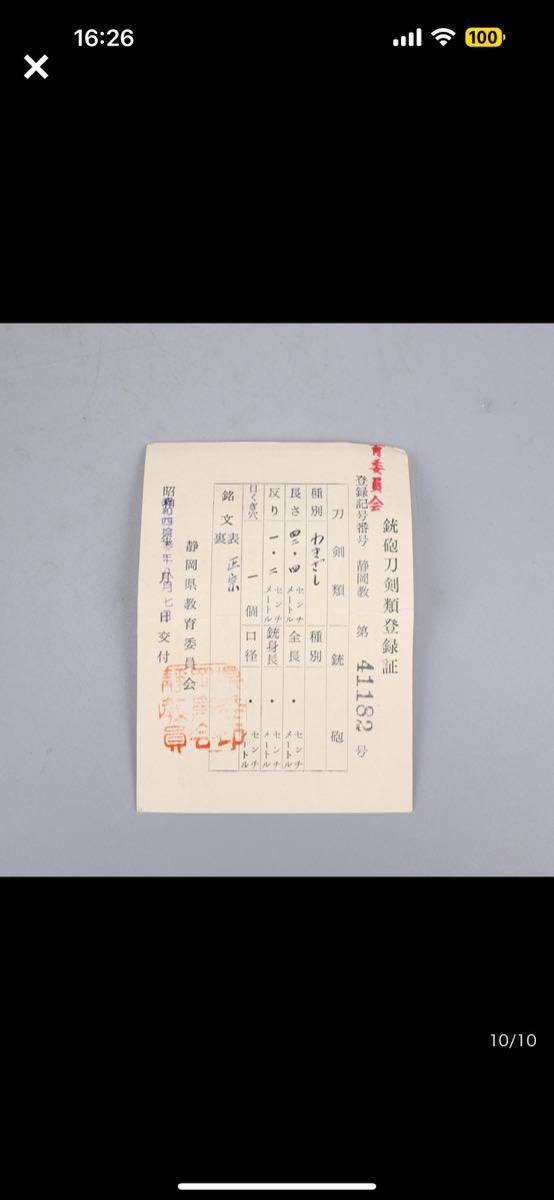 16:26
100
育委員会
銃砲刀剣類登録証
登録記号番号 静岡教 第 41182 号
刀剣類 銃砲
種別 わきざし 種別
長さ 四二・四 センチメートル 全長 ・ センチメートル
反り 一・二 センチメートル 銃身長 ・ センチメートル
目くぎ穴 一 個 口径 ・ センチメートル
銘文 表 正宗
裏
静岡県教育委員会
昭和四拾 年 月七日交付
10/10